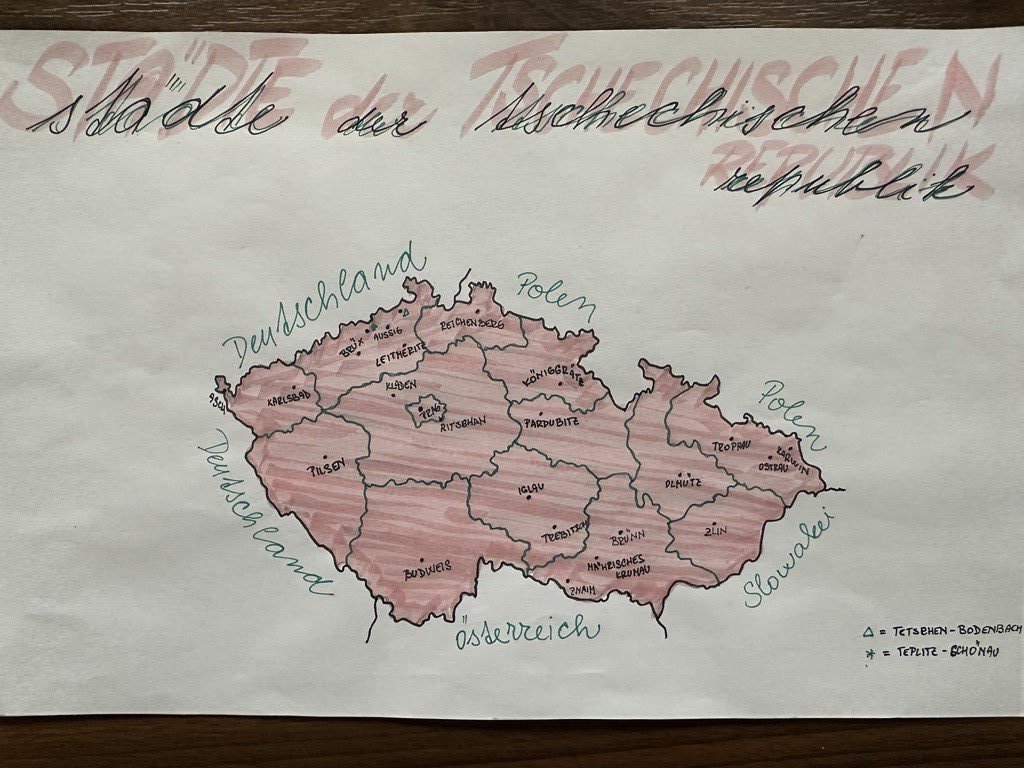 STÄDTE der TSCHECHISCHEN
REPUBLIK
städte der tschechischen
republik
Deutschland
Polen
REICHENBERG
BRÜX
AUSSIG
LEITMERITZ
KÖNIGGRÄTZ
ASCH
KARLSBAD
KLADEN
PRAG
RITSCHAN
PARDUBITZ
Polen
TROPPAU
KARWIN
OSTRAU
Deutschland
PILSEN
OLMÜTZ
IGLAU
TREBITSCH
BRÜNN
ZLIN
BUDWEIS
MÄHRISCHES
KRUMAU
ZNAIM
Slowakei
Österreich
△ = TETSCHEN-BODENBACH
* = TEPLITZ-SCHÖNAU